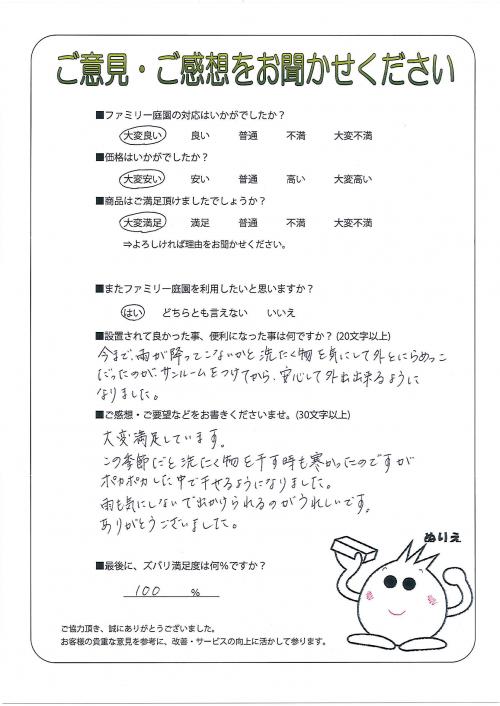 ご意見・ご感想をお聞かせください
■ファミリー庭園の対応はいかがでしたか？
大変良い 良い 普通 不満 大変不満
■価格はいかがでしたか？
大変安い 安い 普通 高い 大変高い
■商品はご満足頂けましたでしょうか？
大変満足 満足 普通 不満 大変不満
⇒よろしければ理由をお聞かせください。
■またファミリー庭園を利用したいと思いますか？
はい どちらとも言えない いいえ
■設置されて良かった事、便利になった事は何ですか？(20文字以上)
今まで、雨が降ってこないかと洗たく物を気にして外とにらめっこ
だったのが、サンルームをつけてから、安心して外出出来るように
なりました。
■ご感想・ご要望などをお書きくださいませ。(30文字以上)
大変満足しています。
この季節だと洗たく物を干す時も寒かったのですが
ポカポカした中で干せるようになりました。
雨も気にしないで出かけられるのがうれしいです。
ありがとうございました。
ぬりえ
■最後に、ズバリ満足度は何％ですか？
100 ％
ご協力頂き、誠にありがとうございました。
お客様の貴重な意見を参考に、改善・サービスの向上に活かして参ります。